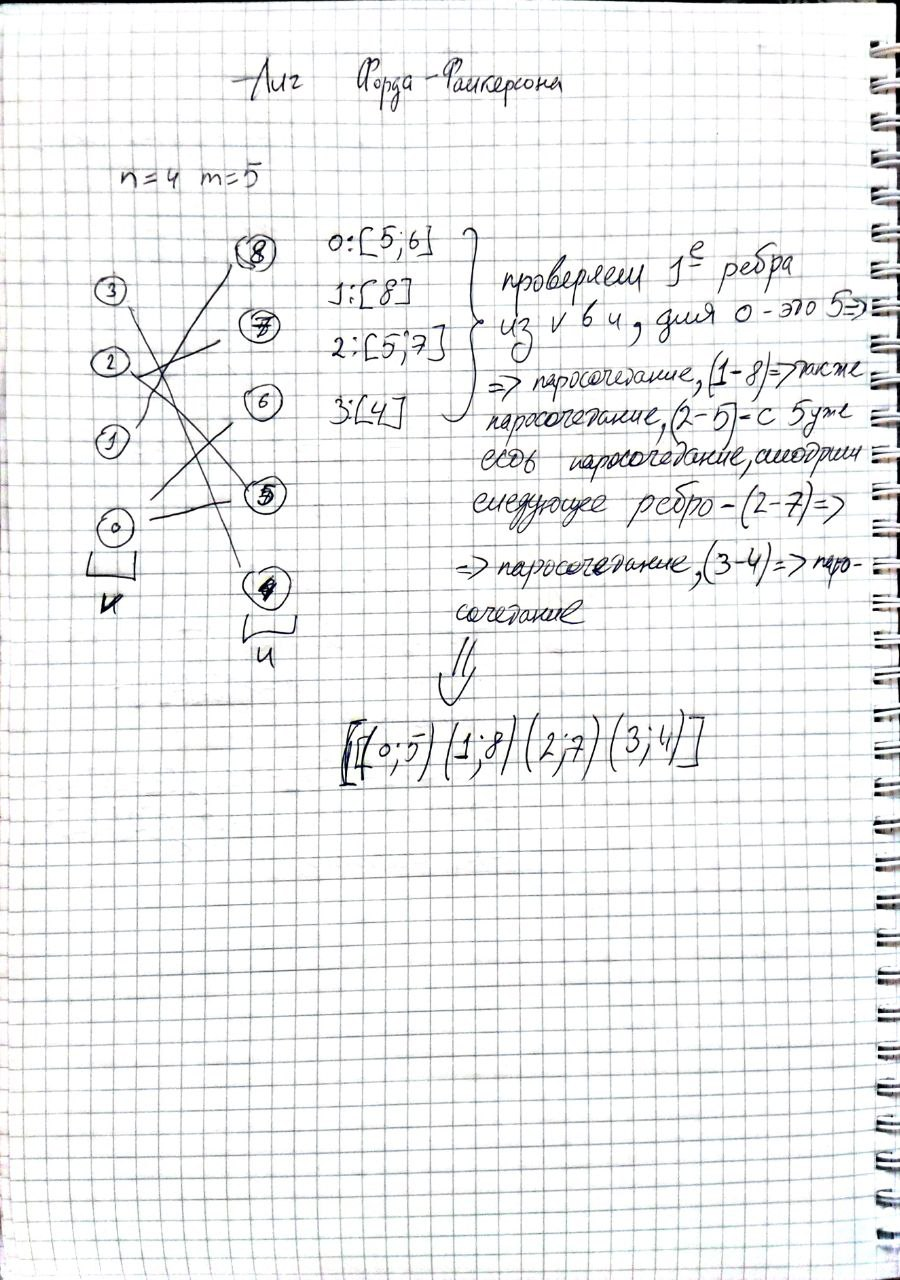 Алг Форда-Фалкерсона
n=4 m=5
3
2
1
0
v
8
7
6
5
4
u
0:[5;6]
1:[8]
2:[5;7]
3:[4]
проверяем 1е ребра
из v в u, для 0 - это 5 =>
=> паросочетание, (1-8) => также
паросочетание, (2-5) - с 5 уже
есть паросочетание, смотрим
следующее ребро - (2-7) =>
=> паросочетание, (3-4) => паро-
сочетание
[(0;5) (1;8) (2;7) (3;4)]